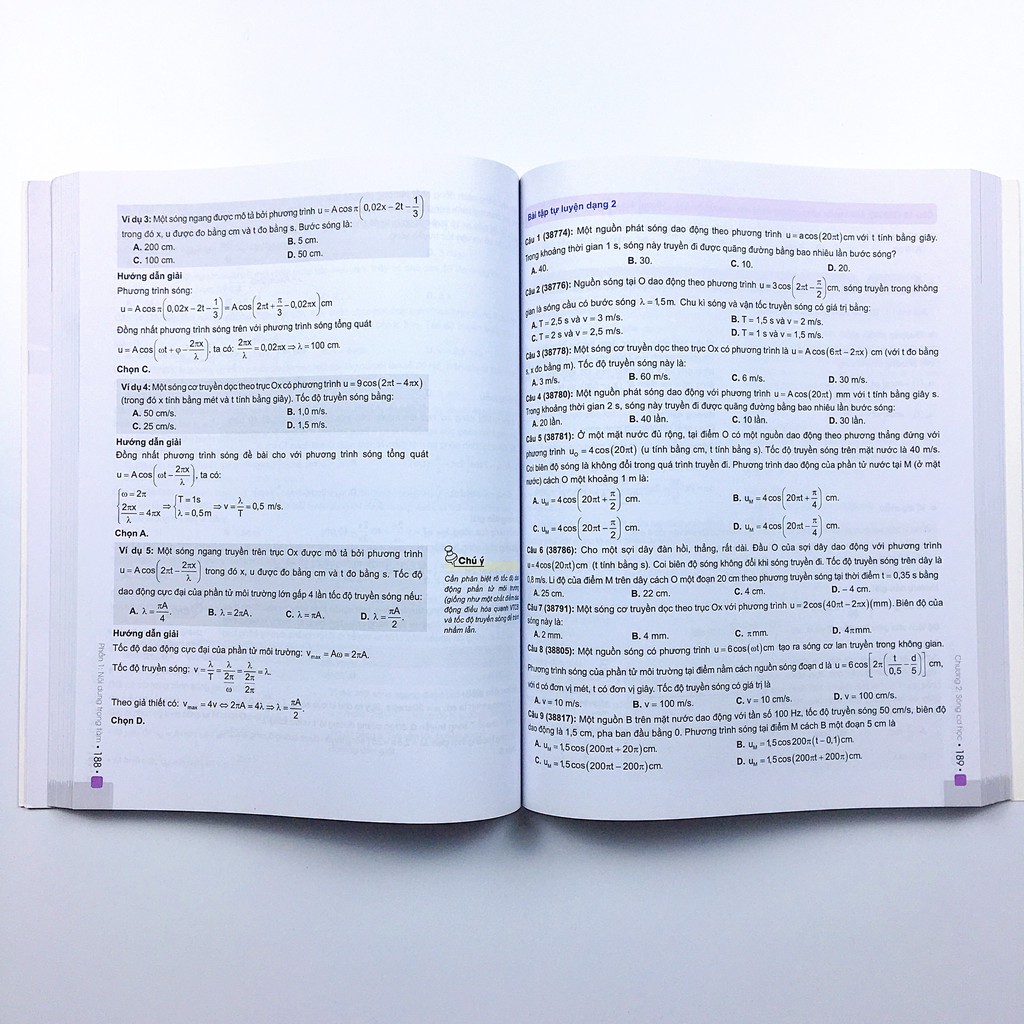 Ví dụ 3: Một sóng ngang được mô tả bởi phương trình u = A cos π(0,02x − 2t − 1/3)
trong đó x, u được đo bằng cm và t đo bằng s. Bước sóng là:
A. 200 cm. B. 5 cm.
C. 100 cm. D. 50 cm.
Hướng dẫn giải
Phương trình sóng:
u = A cos π(0,02x − 2t − 1/3) = A cos(2πt + π/3 − 0,02πx) cm
Đồng nhất phương trình sóng trên với phương trình sóng tổng quát
u = A cos(ωt + φ − 2πx/λ), ta có: 2πx/λ = 0,02πx ⇒ λ = 100 cm.
Chọn C.
Ví dụ 4: Một sóng cơ truyền dọc theo trục Ox có phương trình u = 9cos(2πt − 4πx)
(trong đó x tính bằng mét và t tính bằng giây). Tốc độ truyền sóng bằng:
A. 50 cm/s. B. 1,0 m/s.
C. 25 cm/s. D. 1,5 m/s.
Hướng dẫn giải
Đồng nhất phương trình sóng đề bài cho với phương trình sóng tổng quát
u = A cos(ωt − 2πx/λ), ta có:
{ω = 2π; 2πx/λ = 4πx ⇒ {T = 1s; λ = 0,5m ⇒ v = λ/T = 0,5 m/s.
Chọn A.
Ví dụ 5: Một sóng ngang truyền trên trục Ox được mô tả bởi phương trình
u = A cos(2πt − 2πx/λ) trong đó x, u được đo bằng cm và t đo bằng s. Tốc độ
dao động cực đại của phần tử môi trường lớn gấp 4 lần tốc độ truyền sóng nếu:
A. λ = πA/4. B. λ = 2πA. C. λ = πA. D. λ = πA/2.
Hướng dẫn giải
Tốc độ dao động cực đại của phần tử môi trường: vmax = Aω = 2πA.
Tốc độ truyền sóng: v = λ/T = λ/(2π/ω) = λ/(2π/2π) = λ.
Theo giả thiết có: vmax = 4v ⇔ 2πA = 4λ ⇒ λ = πA/2.
Chọn D.
Chú ý
Cần phân biệt rõ tốc độ dao
động phần tử môi trường
(giống như một chất điểm dao
động điều hòa quanh VTCB
và tốc độ truyền sóng để tránh
nhầm lẫn.
Phần 1: Nội dung trọng tâm • 188 •
Bài tập tự luyện dạng 2
Câu 1 (38774): Một nguồn phát sóng dao động theo phương trình u = acos(20πt)cm với t tính bằng giây.
Trong khoảng thời gian 1 s, sóng này truyền đi được quãng đường bằng bao nhiêu lần bước sóng?
A. 40. B. 30. C. 10. D. 20.
Câu 2 (38776): Nguồn sóng tại O dao động theo phương trình u = 3cos(2πt − π/2)cm, sóng truyền trong không
gian là sóng cầu có bước sóng λ = 1,5m. Chu kì sóng và vận tốc truyền sóng có giá trị bằng:
A. T = 2,5 s và v = 3 m/s. B. T = 1,5 s và v = 2 m/s.
C. T = 2 s và v = 2,5 m/s. D. T = 1 s và v = 1,5 m/s.
Câu 3 (38778): Một sóng cơ truyền dọc theo trục Ox có phương trình là u = Acos(6πt − 2πx) cm (với t đo bằng
s, x đo bằng m). Tốc độ truyền sóng này là:
A. 3 m/s. B. 60 m/s. C. 6 m/s. D. 30 m/s.
Câu 4 (38780): Một nguồn phát sóng dao động với phương trình u = Acos(20πt) mm với t tính bằng giây s.
Trong khoảng thời gian 2 s, sóng này truyền đi được quãng đường bằng bao nhiêu lần bước sóng:
A. 20 lần. B. 40 lần. C. 10 lần. D. 30 lần.
Câu 5 (38781): Ở một mặt nước đủ rộng, tại điểm O có một nguồn dao động theo phương thẳng đứng với
phương trình uO = 4cos(20πt) (u tính bằng cm, t tính bằng s). Tốc độ truyền sóng trên mặt nước là 40 m/s.
Coi biên độ sóng là không đổi trong quá trình truyền đi. Phương trình dao động của phần tử nước tại M (ở mặt
nước) cách O một khoảng 1 m là:
A. uM = 4cos(20πt + π/2) cm. B. uM = 4cos(20πt + π/4) cm.
C. uM = 4cos(20πt − π/2) cm. D. uM = 4cos(20πt − π/4) cm.
Câu 6 (38786): Cho một sợi dây đàn hồi, thẳng, rất dài. Đầu O của sợi dây dao động với phương trình
u = 4cos(20πt)cm (t tính bằng s). Coi biên độ sóng không đổi khi sóng truyền đi. Tốc độ truyền sóng trên dây là
0,8 m/s. Li độ của điểm M trên dây cách O một đoạn 20 cm theo phương truyền sóng tại thời điểm t = 0,35 s bằng
A. 25 cm. B. 22 cm. C. 4 cm. D. − 4 cm.
Câu 7 (38791): Một sóng cơ truyền dọc theo trục Ox với phương trình u = 2cos(40πt − 2πx)(mm). Biên độ của
sóng này là:
A. 2 mm. B. 4 mm. C. πmm. D. 4πmm.
Câu 8 (38805): Một nguồn sóng có phương trình u = 6cos(ωt)cm tạo ra sóng cơ lan truyền trong không gian.
Phương trình sóng của phần tử môi trường tại điểm nằm cách nguồn sóng đoạn d là u = 6cos[2π(t/0,5 − d/5)] cm,
với d có đơn vị mét, t có đơn vị giây. Tốc độ truyền sóng có giá trị là
A. v = 10 m/s. B. v = 100 m/s. C. v = 10 cm/s. D. v = 100 cm/s.
Câu 9 (38817): Một nguồn B trên mặt nước dao động với tần số 100 Hz, tốc độ truyền sóng 50 cm/s, biên độ
dao động là 1,5 cm, pha ban đầu bằng 0. Phương trình sóng tại điểm M cách B một đoạn 5 cm là
A. uM = 1,5cos(200πt + 20π)cm. B. uM = 1,5cos200π(t − 0,1)cm.
C. uM = 1,5cos(200πt − 200π)cm. D. uM = 1,5cos(200πt + 200π)cm.
Chương 2: Sóng cơ học • 189 •